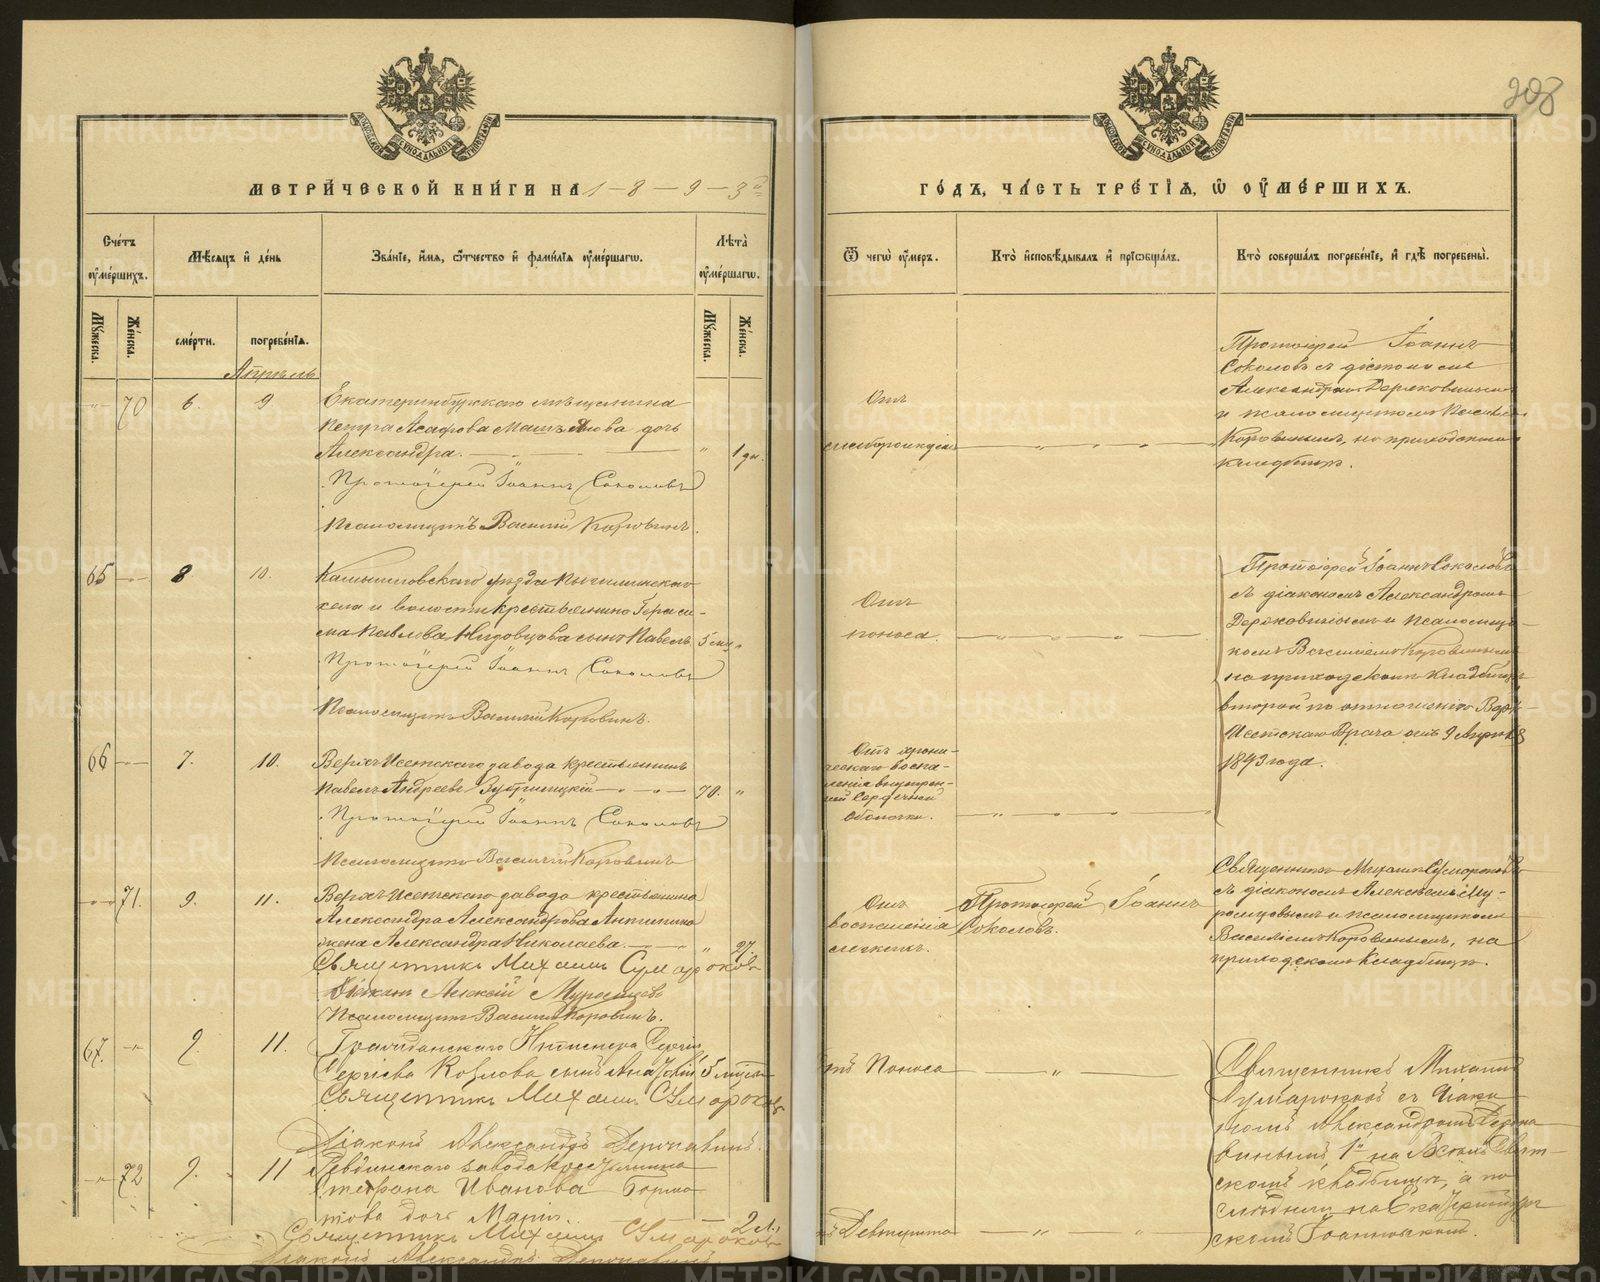 208
МЕТРИЧЕСКОЙ КНИГИ НА 1-8-9-3й
ГОДЪ, ЧАСТЬ ТРЕТІЯ, Ѡ ОУМЕРШИХЪ.
Счетъ оумершихъ.
Мѣсяцъ и день
Званіе, имя, отчество и фамилія оумершагѡ.
Лѣта оумершагѡ.
Мужеска.
Женска.
смерти.
погребенія.
Мужеска.
Женска.
Ѿ чегѡ оумеръ.
Кто исповѣдывалъ и пріѡбщалъ.
Кто совершалъ погребеніе, и гдѣ погребены.
Апрѣль
70 6. 9 Екатеринбургскаго мѣщанина
Петра Асафова дочь
Александра. 1 дн.
Протоіерей Іоаннъ Соколовъ
Псаломщикъ Василій Коровинъ.
Отъ
Протоіерей Іоаннъ
Соколовъ съ діакономъ
Александромъ Державинымъ
и псаломщикомъ Василіемъ
Коровинымъ, на приходскомъ
кладбищѣ.
65 8 10. Камышловскаго уѣзда
села и волости крестьянина Гераси-
ма Павлова сынъ Павелъ 5 мѣс.
Протоіерей Іоаннъ Соколовъ
Псаломщикъ Василій Коровинъ.
Отъ
поноса.
Протоіерей Іоаннъ Соколовъ
съ діакономъ Александромъ
Державинымъ и псаломщи-
комъ Василіемъ Коровинымъ
на приходскомъ кладбищѣ
второй по отношенію Верх-
Исетскаго Врача отъ 9 Апрѣля
1893 года.
66 7. 10. Верхъ-Исетскаго завода крестьянинъ
Павелъ Андреевъ 70.
Протоіерей Іоаннъ Соколовъ
Псаломщикъ Василій Коровинъ
Отъ хрони-
ческаго воспа-
ленія внутрен-
ней сердечной
оболочки.
71. 9. 11. Верхъ-Исетскаго завода крестьянина
Александра Александрова Антипина
жена Александра Николаева. 27.
Священникъ Михаилъ Сумароковъ
Діаконъ Алексѣй
Псаломщикъ Василій Коровинъ.
Отъ
воспаленія
легкихъ.
Протоіерей Іоаннъ
Соколовъ.
Священникъ Михаилъ Сумароковъ
съ діакономъ Алексѣемъ Му-
и псаломщикомъ
Василіемъ Коровинымъ, на
приходскомъ кладбищѣ.
67. 9. 11. Гражданскаго Инженера Сергѣя
Сергіева Козлова сынъ Анатолій 5 мѣсяц
Священникъ Михаилъ Сумароковъ
Діаконъ Александръ Державинъ.
Поноса
Священникъ Михаилъ
Сумароковъ съ Діако-
номъ Александромъ Держа-
винымъ 1й на Всѣхъ Свят-
скомъ кладбищѣ, а по
слѣдній на Екатеринбург
скомъ Іоанновскомъ.
72 9. 11 Ревдинскаго завода крестьянина
Степана Иванова
дочь Марія. 2 л.
Священникъ Михаилъ Сумароковъ
Діаконъ Александръ Державинъ